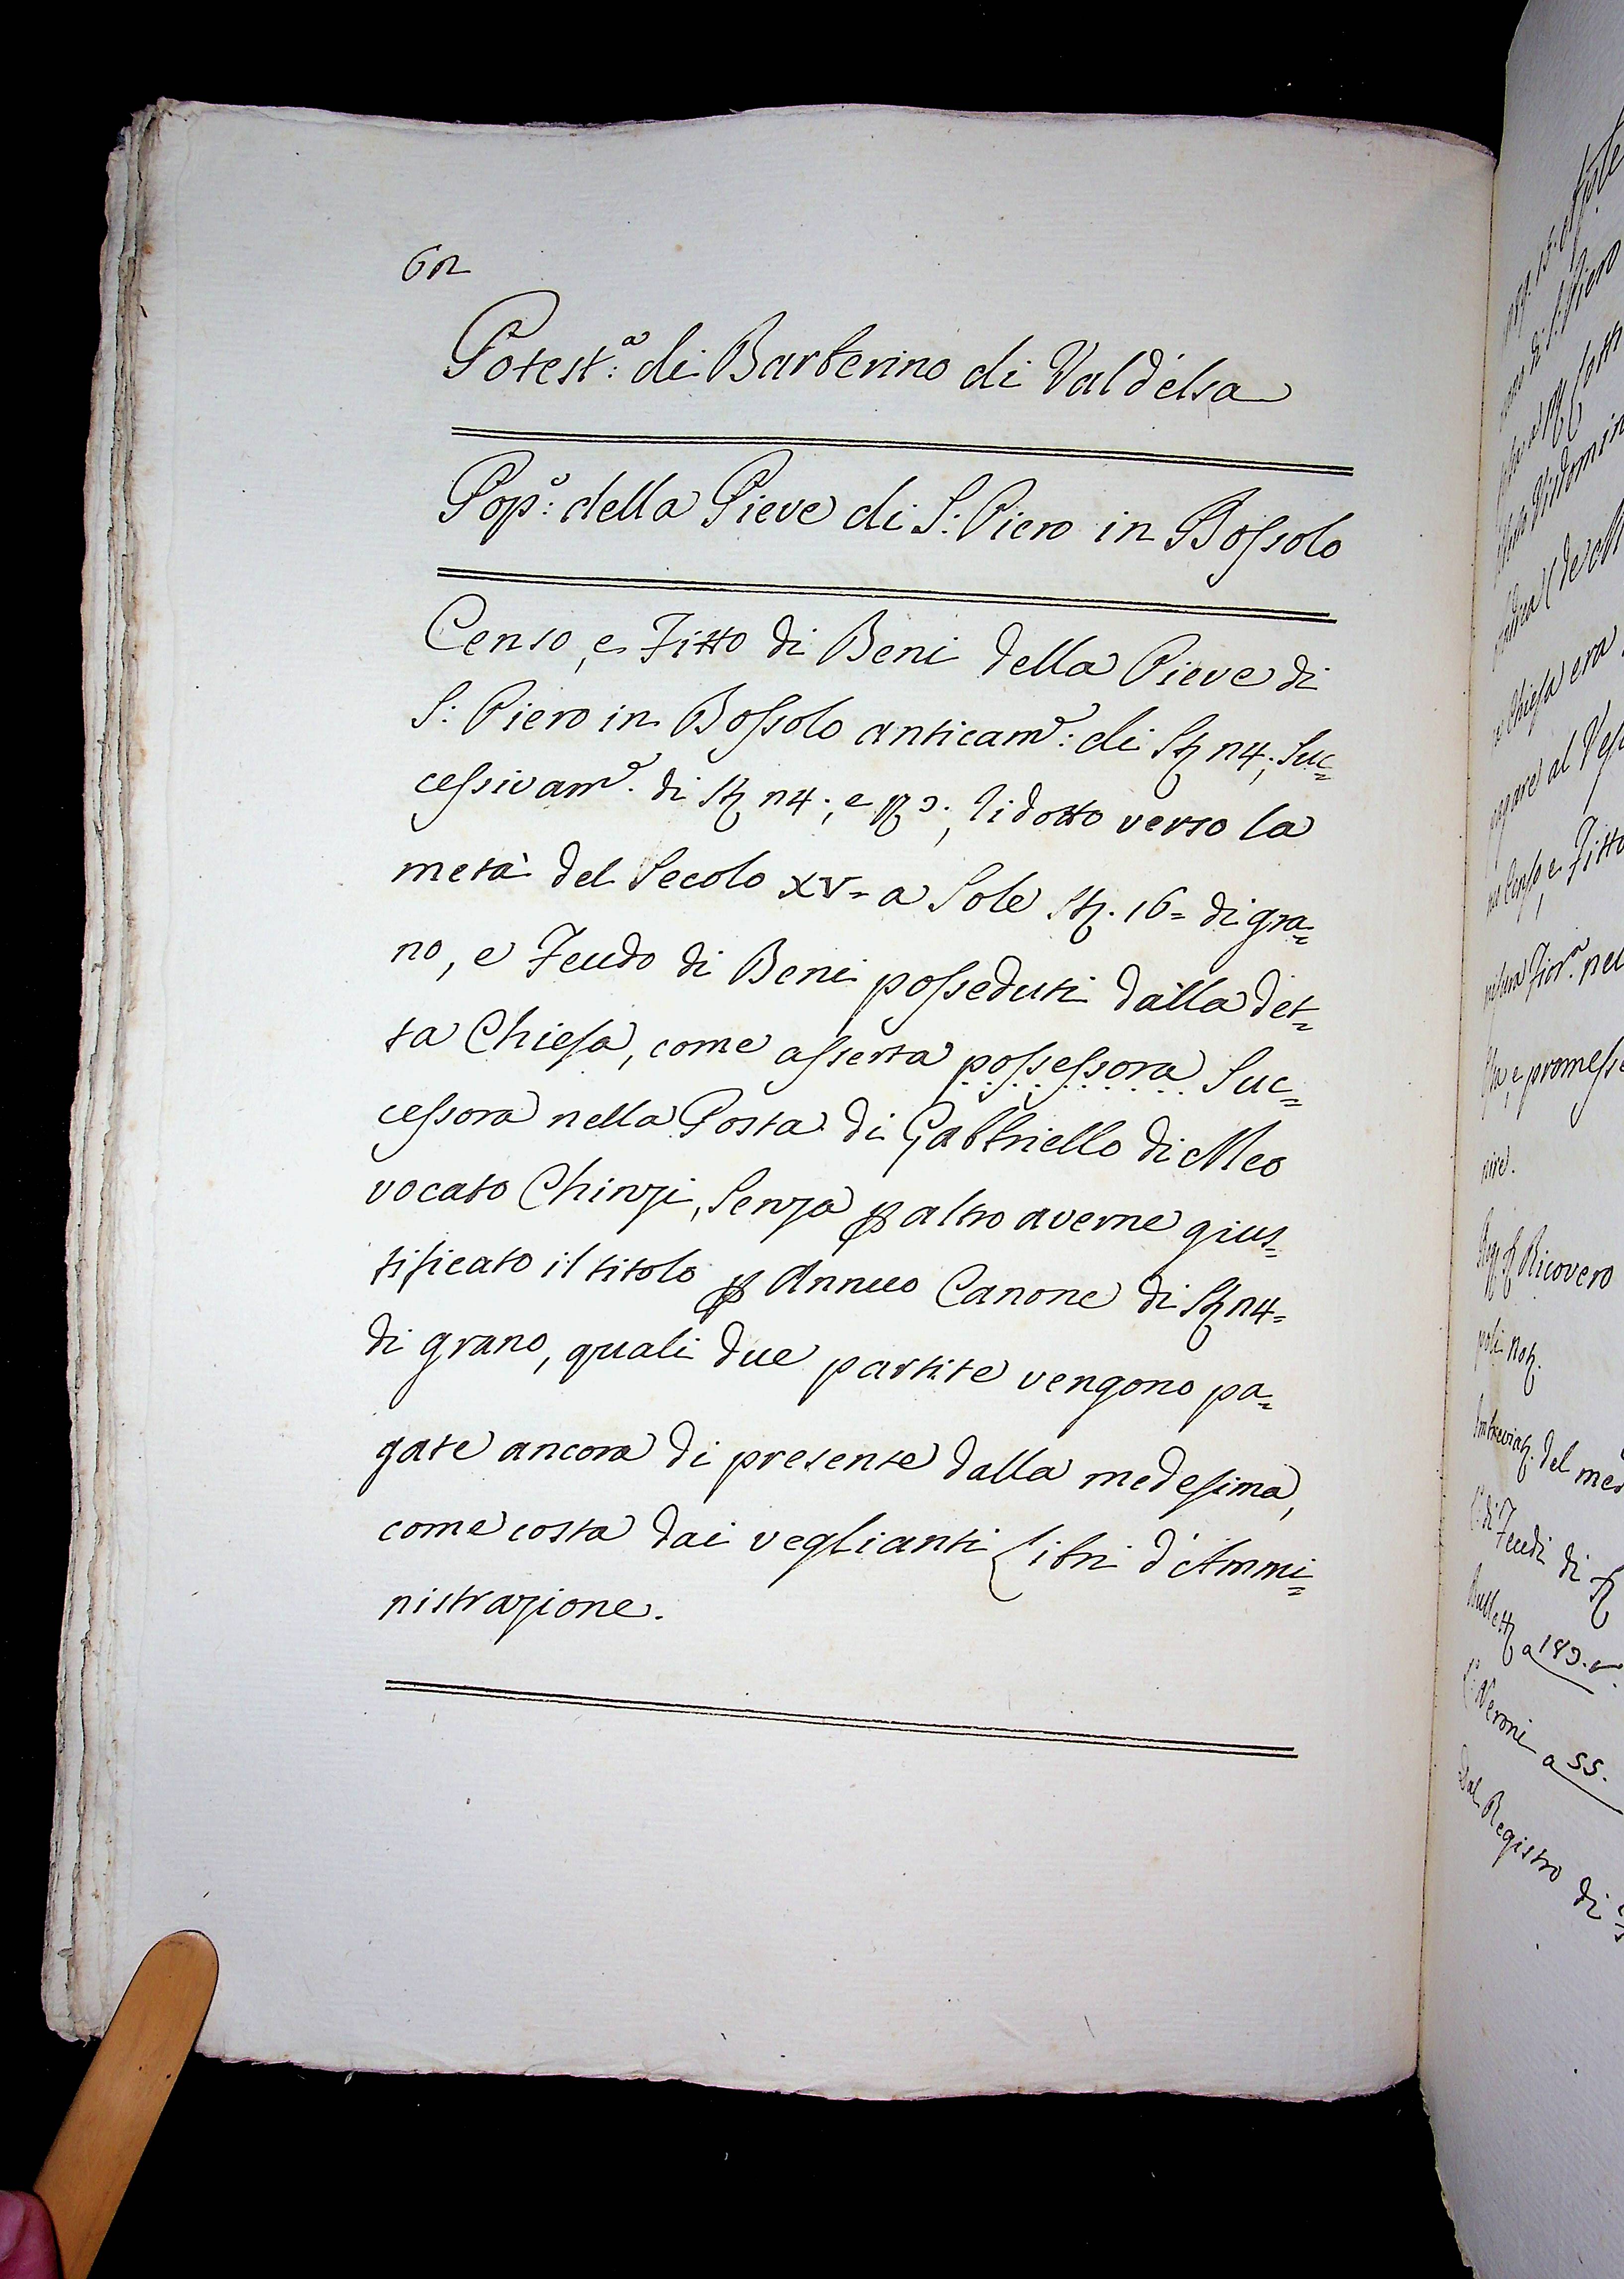 62
Potest.ª di Barberino di Vald'elsa
Pop.º della Pieve di S: Piero in Bossolo
Censo, e Fitto di Beni della Pieve di
S: Piero in Bossolo anticam.e: di St 24; Suc=
cessivam.e di St 24; e ridotto verso la
metà del Secolo XV= a Sole St. 16= di gra=
no, e Feudo di Beni posseduti dalla det=
ta Chiesa, come asserta possessora Suc=
cessora nella Posta di Gabbriello di Meo
vocato Chinzi, Senza p altro averne gius=
tificato il titolo p Annuo Canone di St 24=
di grano, quali due partite vengono pa=
gate ancora di presente dalla medesima,
come costa dai veglianti Libri d'Ammi=
nistrazione.
di S: Piero
Chiesa era
pagare al
Fitto
misura Fior.ª nel
e promesse
nire.
Ricovero
poli Not.
del med
Feudi di
Bullett a 189.
Neroni a 55.
Dal Registro di